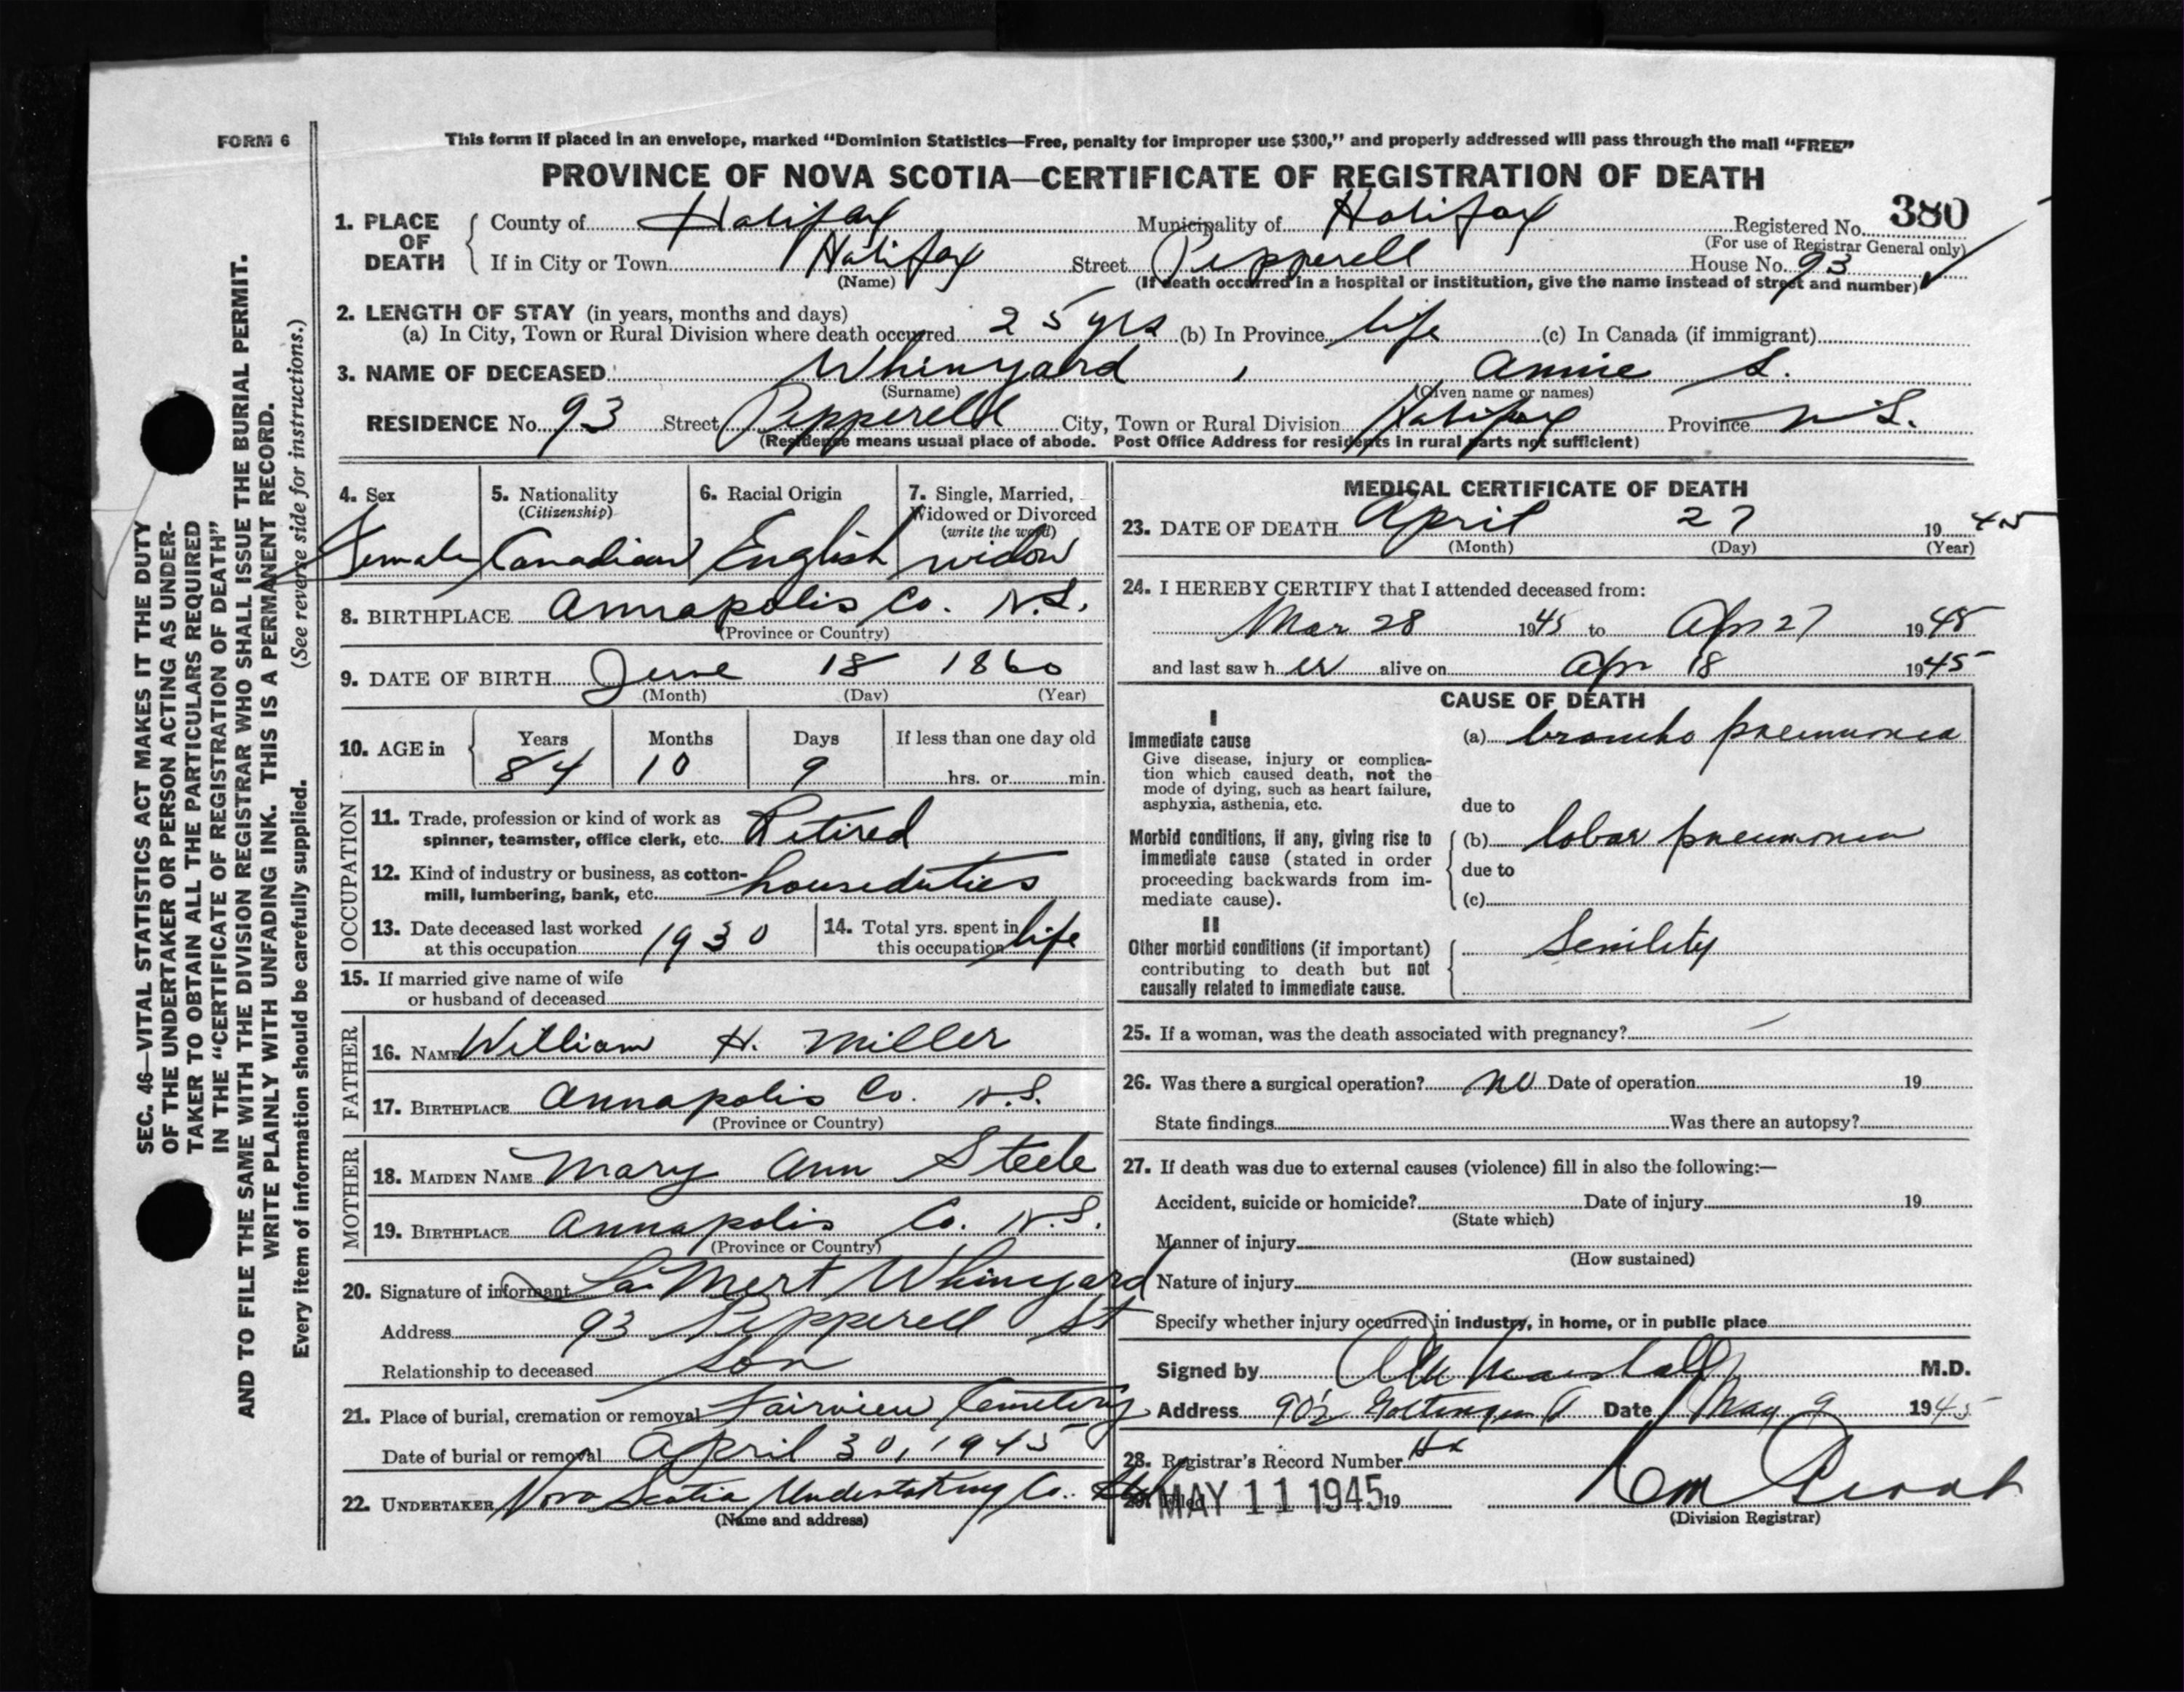 FORM 6
This form if placed in an envelope, marked “Dominion Statistics—Free, penalty for improper use $300,” and properly addressed will pass through the mail “FREE”
PROVINCE OF NOVA SCOTIA—CERTIFICATE OF REGISTRATION OF DEATH
1. PLACE OF DEATH County of Halifax Municipality of Halifax Registered No. 380
(For use of Registrar General only)
If in City or Town Halifax Street Pepperell House No. 93
(Name) (If death occurred in a hospital or institution, give the name instead of street and number)
2. LENGTH OF STAY (in years, months and days)
(a) In City, Town or Rural Division where death occurred 25 yrs (b) In Province life (c) In Canada (if immigrant)
3. NAME OF DECEASED Whinyard , Annie S.
(Surname) (Given name or names)
RESIDENCE No. 93 Street Pepperell City, Town or Rural Division Halifax Province N.S.
(Residence means usual place of abode. Post Office Address for residents in rural parts not sufficient)
4. Sex
Female
5. Nationality
(Citizenship)
Canadian
6. Racial Origin
English
7. Single, Married,
Widowed or Divorced
(write the word)
widow
8. BIRTHPLACE Annapolis Co. N.S.
(Province or Country)
9. DATE OF BIRTH June 18 1860
(Month) (Day) (Year)
10. AGE in Years Months Days If less than one day old
84 10 9 hrs. or min.
OCCUPATION
11. Trade, profession or kind of work as
spinner, teamster, office clerk, etc. Retired
12. Kind of industry or business, as cotton-
mill, lumbering, bank, etc. houseduties
13. Date deceased last worked
at this occupation 1930
14. Total yrs. spent in
this occupation life
15. If married give name of wife
or husband of deceased
FATHER
16. NAME William H. Miller
17. BIRTHPLACE Annapolis Co. N.S.
(Province or Country)
MOTHER
18. MAIDEN NAME Mary Ann Steele
19. BIRTHPLACE Annapolis Co. N.S.
(Province or Country)
20. Signature of informant La Mert Whinyard
Address 93 Pepperell St
Relationship to deceased Son
21. Place of burial, cremation or removal Fairview Cemetery
Date of burial or removal April 30, 1945
22. UNDERTAKER Nova Scotia Undertaking Co.
(Name and address)
MEDICAL CERTIFICATE OF DEATH
23. DATE OF DEATH April 27 1945
(Month) (Day) (Year)
24. I HEREBY CERTIFY that I attended deceased from:
Mar 28 1945 to Apr 27 1945
and last saw her alive on Apr 18 1945
CAUSE OF DEATH
I
Immediate cause
Give disease, injury or complica-
tion which caused death, not the
mode of dying, such as heart failure,
asphyxia, asthenia, etc.
(a) broncho pneumonia
due to
Morbid conditions, if any, giving rise to
immediate cause (stated in order
proceeding backwards from im-
mediate cause).
(b) lobar pneumonia
due to
(c)
II
Other morbid conditions (if important)
contributing to death but not
causally related to immediate cause.
Senility
25. If a woman, was the death associated with pregnancy? —
26. Was there a surgical operation? no Date of operation 19
State findings Was there an autopsy?
27. If death was due to external causes (violence) fill in also the following:—
Accident, suicide or homicide? Date of injury 19
(State which)
Manner of injury
(How sustained)
Nature of injury
Specify whether injury occurred in industry, in home, or in public place
Signed by Marshall M.D.
Address Date May 9 1945
28. Registrar's Record Number
29. Filed MAY 11 1945 19
(Division Registrar)
SEC. 46—VITAL STATISTICS ACT MAKES IT THE DUTY
OF THE UNDERTAKER OR PERSON ACTING AS UNDER-
TAKER TO OBTAIN ALL THE PARTICULARS REQUIRED
IN THE “CERTIFICATE OF REGISTRATION OF DEATH”
AND TO FILE THE SAME WITH THE DIVISION REGISTRAR WHO SHALL ISSUE THE BURIAL PERMIT.
WRITE PLAINLY WITH UNFADING INK. THIS IS A PERMANENT RECORD.
Every item of information should be carefully supplied. (See reverse side for instructions.)